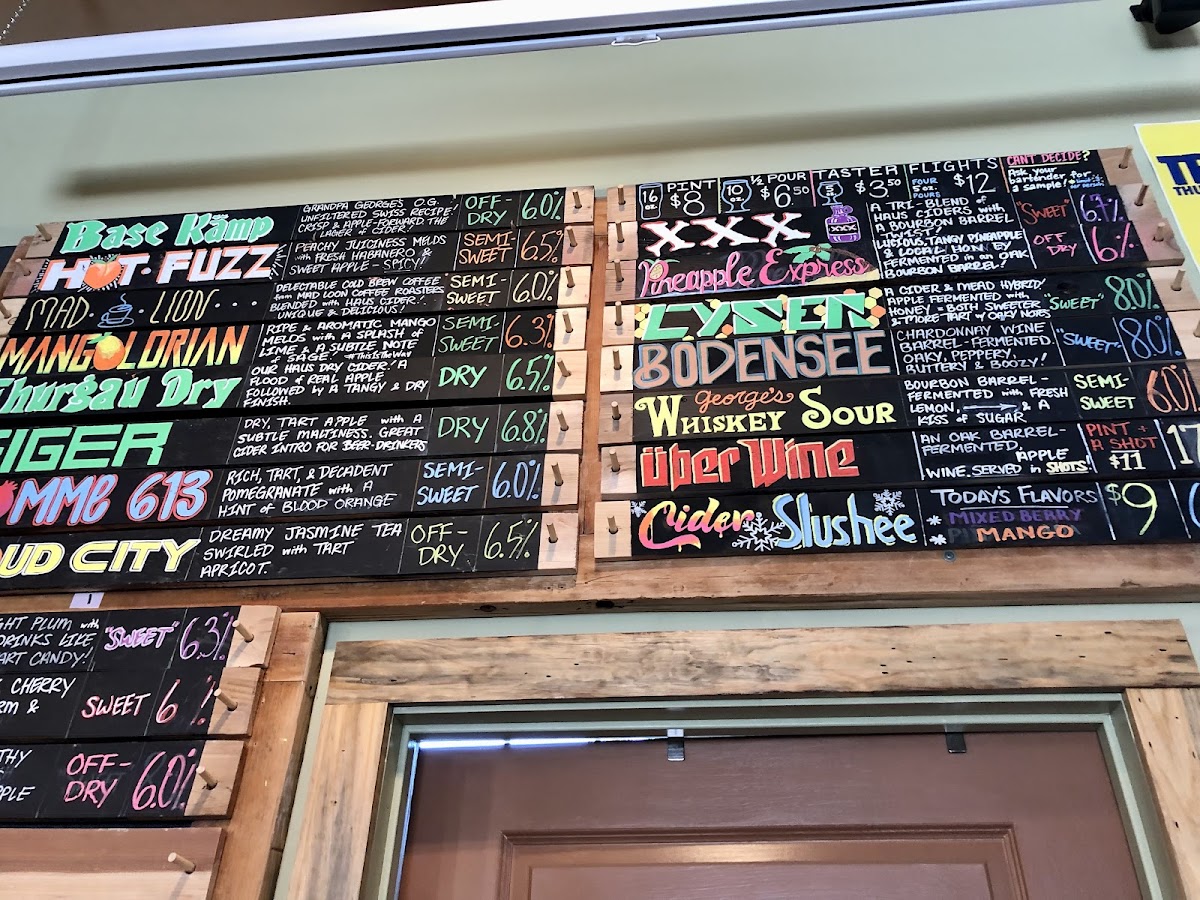 Base Kamp
GRANDPA GEORGE'S O.G.
UNFILTERED SWISS RECIPE!
CRISP & APPLE-FORWARD THE
LAGER of CIDER!
OFF-
DRY
6.0%
HOT·FUZZ
PEACHY JUICINESS MELDS
with FRESH HABANERO &
SWEET APPLE - SPICY!
SEMI-
SWEET
6.5%
MAD LION...
DELECTABLE COLD BREW COFFEE
from MAD LOON COFFEE ROASTERS
BLENDED with HAUS CIDER!
UNIQUE & DELICIOUS!
SEMI-
SWEET
6.0%
MANGOLORIAN
RIPE & AROMATIC MANGO
MELDS with A SPLASH of
LIME & A SUBTLE NOTE
of SAGE! #ThisIsTheWay
SEMI-
SWEET
6.3%
Thurgau Dry
OUR HAUS DRY CIDER! A
FLOOD of REAL APPLE
FOLLOWED by A TANGY & DRY
FINISH.
DRY
6.5%
EIGER
DRY, TART APPLE with A
SUBTLE MALTINESS. GREAT
CIDER INTRO for BEER-DRINKERS
DRY
6.8%
MME 613
RICH, TART, & DECADENT
POMEGRANATE with A
HINT of BLOOD ORANGE
SEMI-
SWEET
6.0%
OUD CITY
DREAMY JASMINE TEA
SWIRLED with TART
APRICOT.
OFF-
DRY
6.5%
GHT PLUM with
DRINKS LIKE
ART CANDY!
"SWEET"
6.3%
CHERRY
RM &
SWEET
6 %
THY
PLE
OFF-
DRY
6.0%
16 oz
PINT
$8
10 oz
½ POUR
$6.50
5 oz
TASTER
$3.50
FLIGHTS
FOUR
5 oz.
POURS
$12
CAN'T DECIDE?
Ask your
bartender for
a sample!
XXX
XXX
A TRI-BLEND of
HAUS CIDERS with
A BOURBON BARREL
TWIST!
"SWEET"
6.7%
Pineapple Express
LUCIOUS, TANGY PINEAPPLE
& LOCAL HONEY
FERMENTED in AN OAK
BOURBON BARREL!
OFF
DRY
6%
LYSER
A CIDER & MEAD HYBRID!
APPLE FERMENTED with
HONEY - BOTH SWEETER
& MORE TART w/ OAKY NOTES
"SWEET"
8.0%
BODENSEE
CHARDONNAY WINE
BARREL-FERMENTED.
OAKY, PEPPERY,
BUTTERY & BOOZY!
"SWEET"
8.0%
george's
WHISKEY SOUR
BOURBON BARREL-
FERMENTED with FRESH
LEMON, & A
KISS of SUGAR
SEMI-
SWEET
6.0%
über Wine
AN OAK BARREL-
FERMENTED, APPLE
WINE. SERVED in SHOTS!
PINT +
A SHOT
$11
17
Cider Slushee
TODAY'S FLAVORS
MIXED BERRY
MANGO
$9